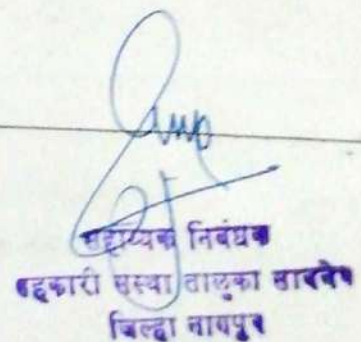 सहाय्यक निबंधक
सहकारी संस्था तालुका सावनेर
जिल्हा नागपुर